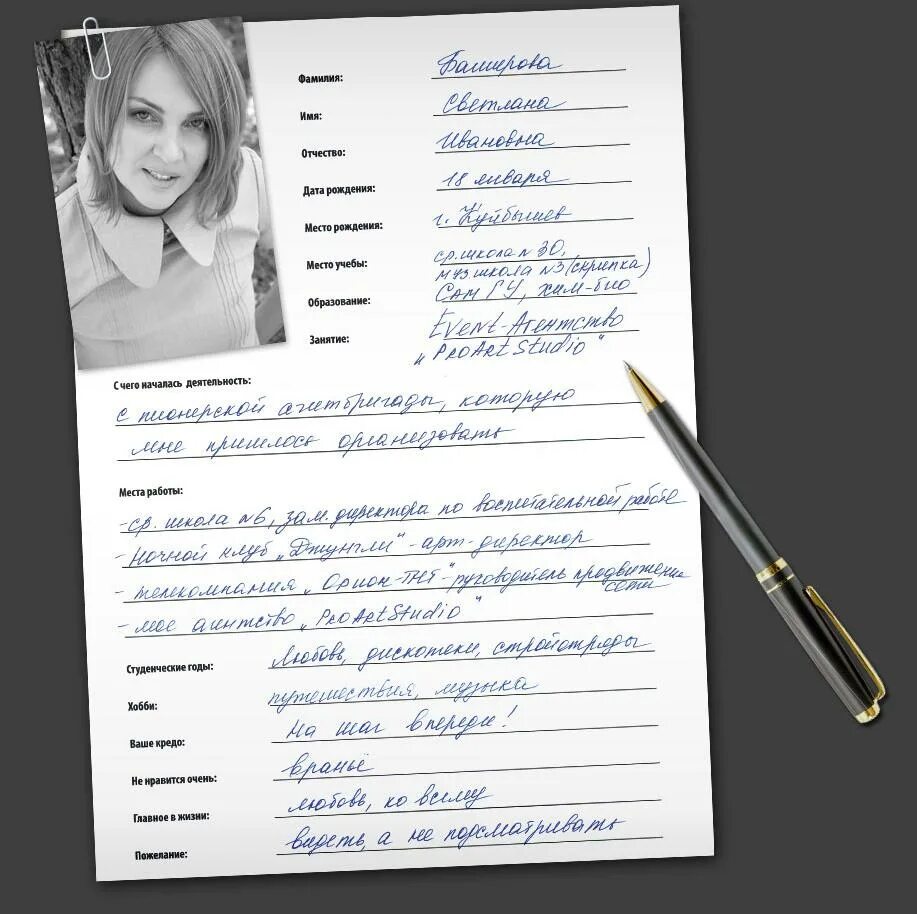 Фамилия: Баширова
Имя: Светлана
Отчество: Ивановна
Дата рождения: 18 января
Место рождения: г. Куйбышев
Место учебы: ср. школа N 30,
муз школа N3 (скрипка)
Образование: СамГУ, хим-био
Занятие: Event-Агентство
„ProArtStudio"
С чего началась деятельность:
с пионерской агитбригады, которую
мне пришлось организовать
Места работы:
- ср. школа N6, зам. директора по воспитательной работе
- Ночной клуб „Джунгли" - арт-директор
- телекомпания „Орион-ТНТ" - руководитель продвижение
сети
- мое агнтство „ProArtStudio"
Студенческие годы: Любовь, дискотеки, стройотряды
Хобби: путешествия, музыка
Ваше кредо: На шаг впереди!
Не нравится очень: враньё
Главное в жизни: любовь, ко всему
Пожелание: видеть, а не подсматривать